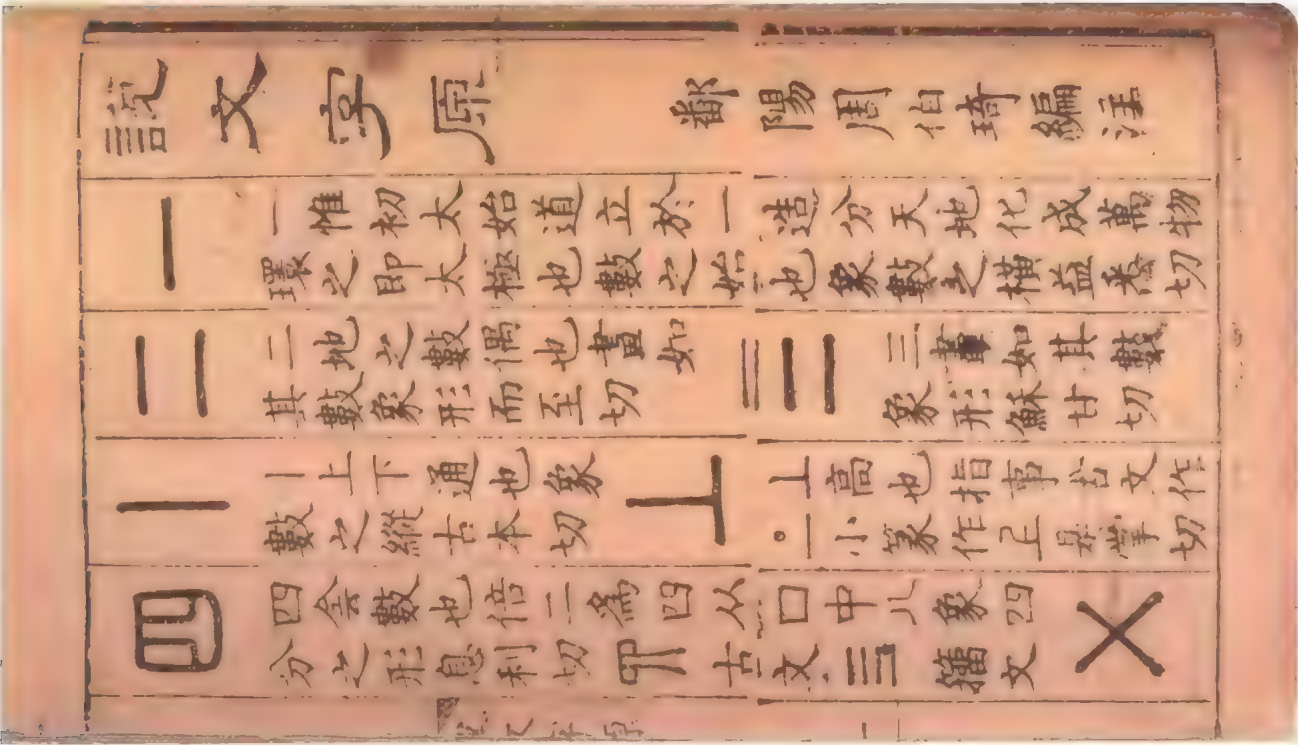 說文字原 鄱陽周伯琦編注
一 一惟初太始道立於一造分天地化成萬物
環之即太極也數之始也象數之橫益悉切
二 二地之數偶也畫如
其數象形而至切
三 三畫如其數
象形穌甘切
丨 丨上下通也象
數之縱古本切
丄 丄高也指事古文作
小篆作上是掌切
四 四侌數也倍二爲四从口中八象四
分之形息利切𦉭古文亖籒文
㐅
說文字原 一